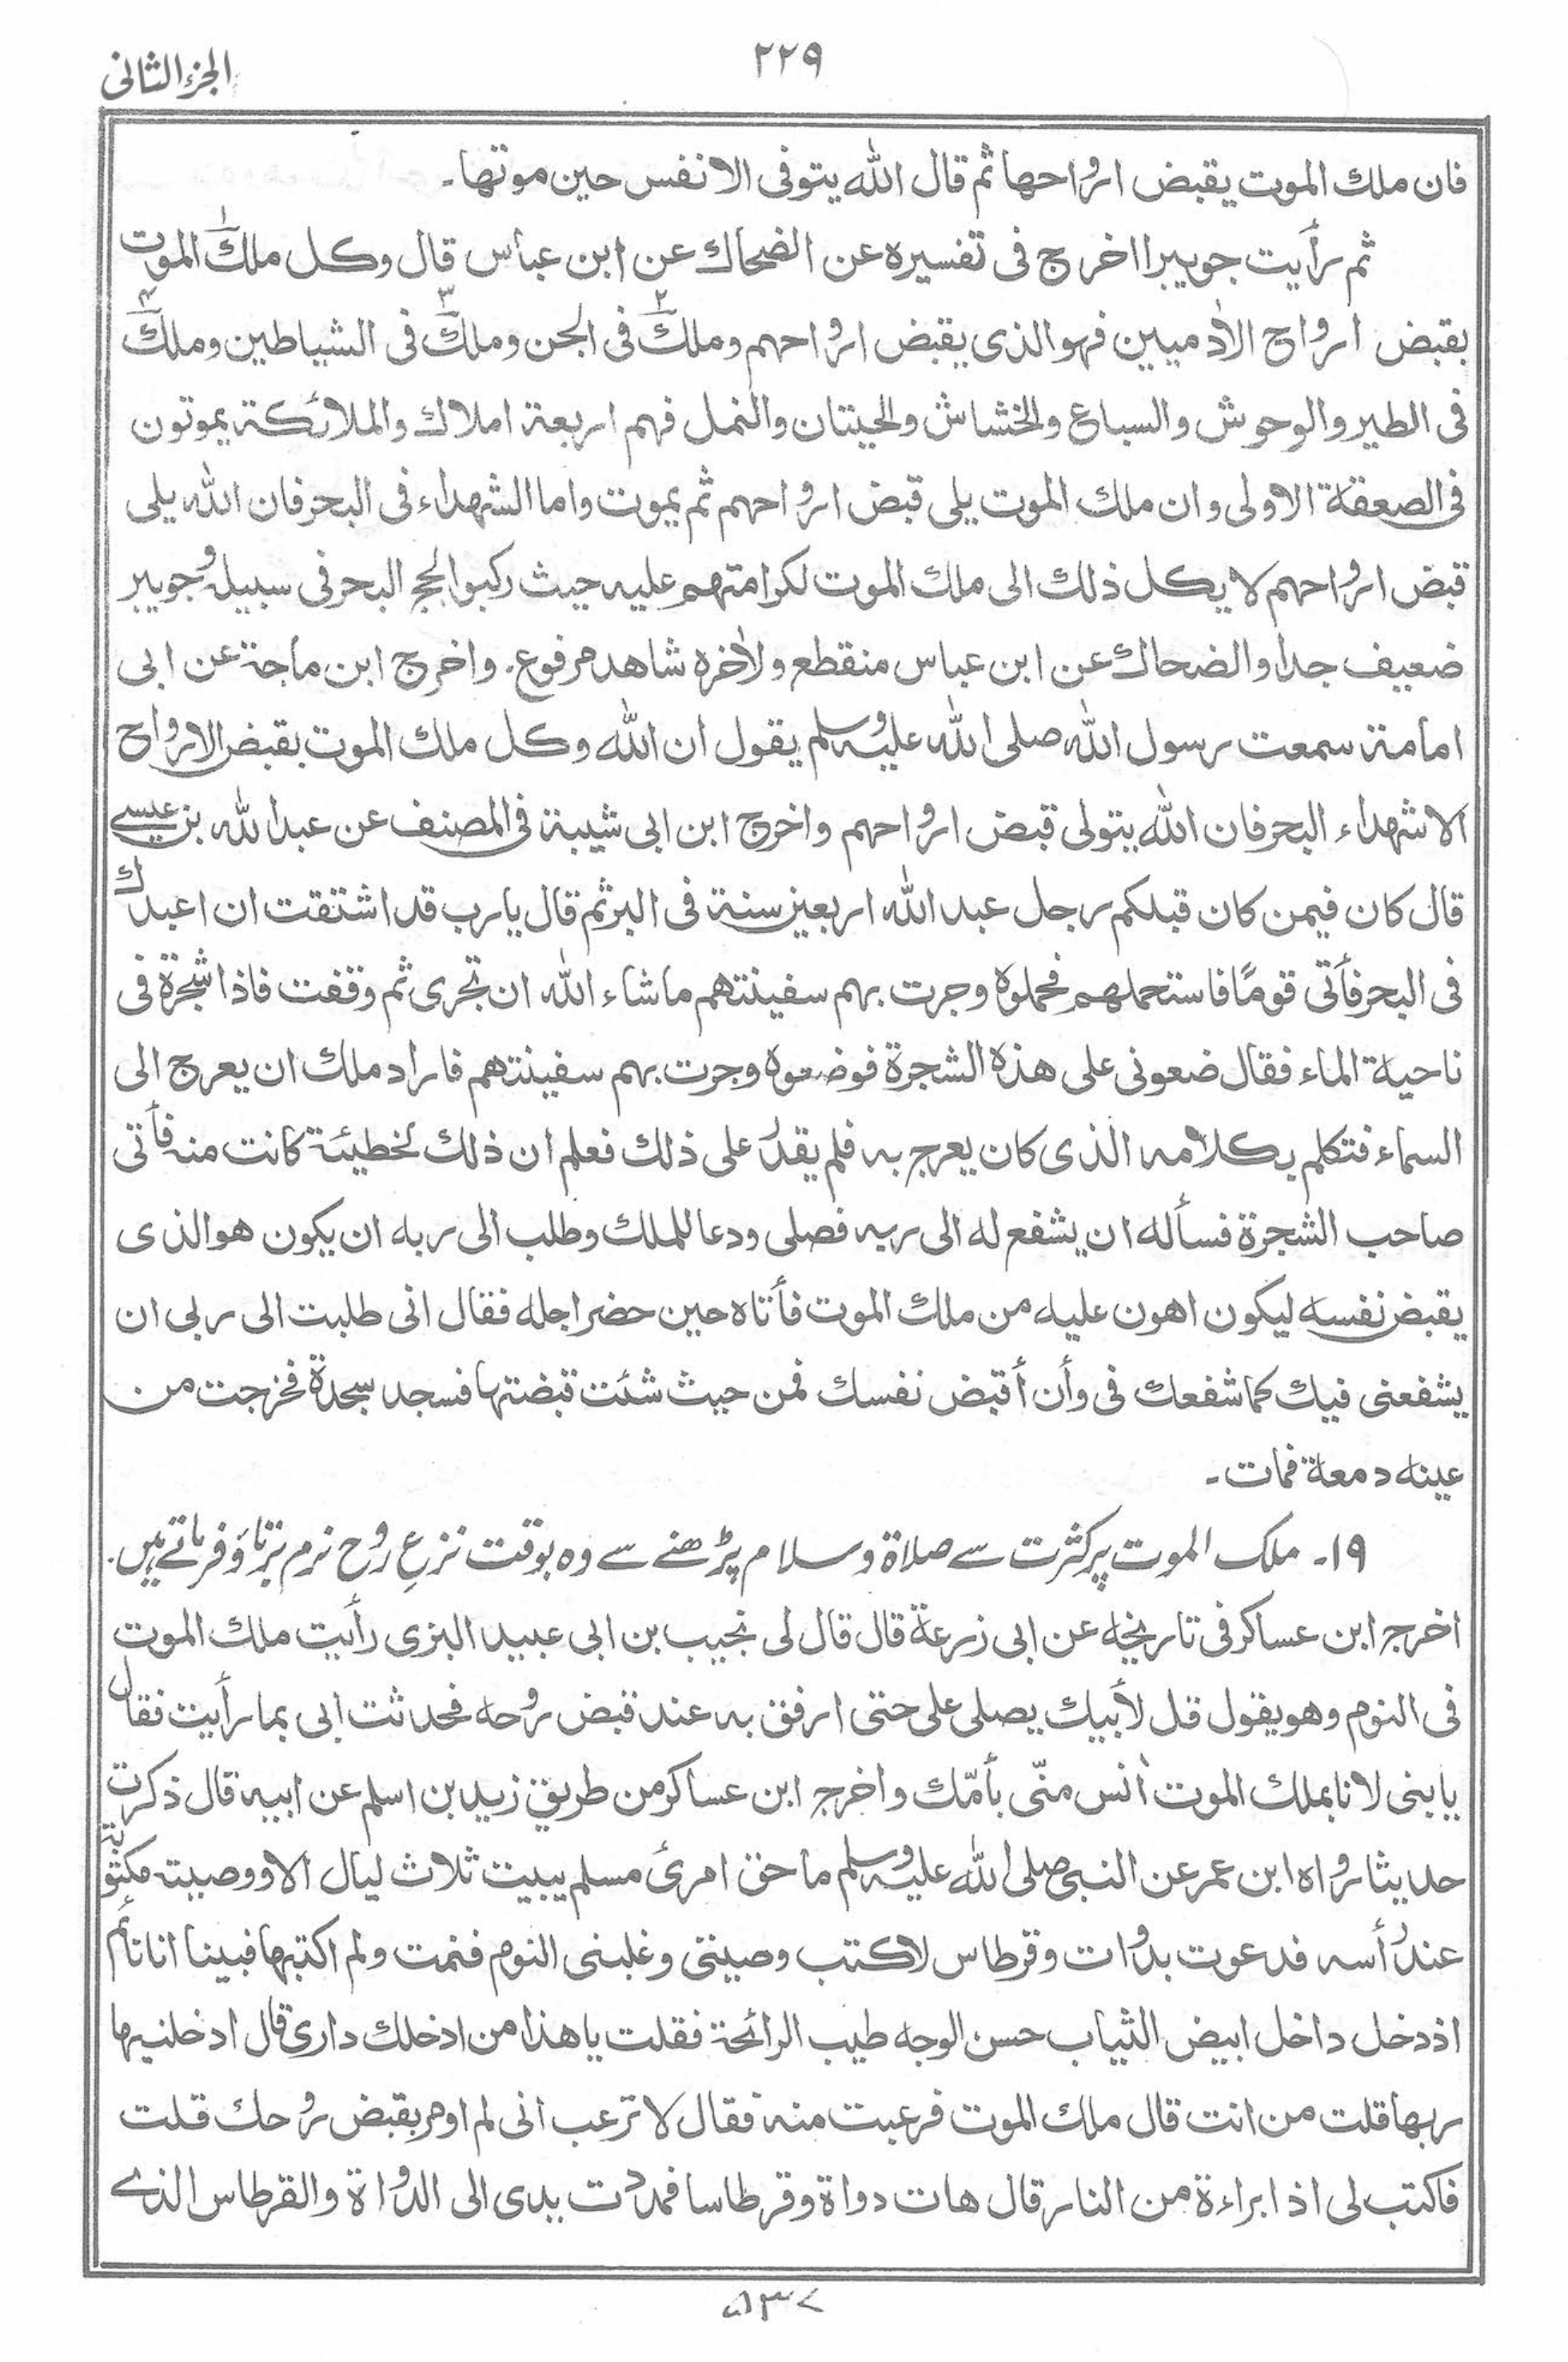 ٢٢٩
الجزء الثانی
فان ملك الموت يقبض ارواحها ثم قال الله يتوفى الانفس حين موتها۔
ثم رأيت جويبرا اخرج فى تفسيره عن الضحاك عن ابن عباس قال وكل ملك١ الموت
بقبض ارواح الاٰدميين فهو الذى يقبض ارواحهم وملك٢ فى الجن وملك٣ فى الشياطين وملك٤
فى الطير والوحوش والسباع والخشاش والحيتان والنمل فهم اربعة املاك والملائكة يموتون
فى الصعقة الاولى وان ملك الموت يلى قبض ارواحهم ثم يموت واما الشهداء فى البحر فان الله يلى
قبض ارواحهم لا يكل ذلك الى ملك الموت لكرامتهم عليه حيث ركبوا لجج البحر فى سبيله وجويبر
ضعيف جدا والضحاك عن ابن عباس منقطع ولاٰخره شاهد مرفوع۔ واخرج ابن ماجة عن ابى
امامة سمعت رسول الله صلى الله عليه وسلم يقول ان الله وكل ملك الموت بقبض الارواح
الا شهداء البحر فان الله يتولى قبض ارواحهم واخرج ابن ابى شيبة فى المصنف عن عبدالله بن عيسے
قال كان فيمن كان قبلكم رجل عبد الله اربعين سنة فى البر ثم قال يا رب قد اشتقت ان اعبدك
فى البحر فأتى قومًا فاستحملهم فحملوه وجرت بهم سفينتهم ما شاء الله ان تجرى ثم وقفت فاذا شجرة فى
ناحية الماء فقال ضعونى على هذه الشجرة فوضعوه وجرت بهم سفينتهم فاراد ملك ان يعرج الى
السماء فتكلم بكلامه الذى كان يعرج به فلم يقدر على ذلك فعلم ان ذلك لخطيئة كانت منه فأتى
صاحب الشجرة فسأله ان يشفع له الى ربه فصلى ودعا للملك وطلب الى ربه ان يكون هو الذى
يقبض نفسه ليكون اهون عليه من ملك الموت فأتاه حين حضر اجله فقال انى طلبت الى ربى ان
يشفعنى فيك كما شفعك فى وأن أقبض نفسك فمن حيث شئت قبضتها فسجد سجدة فخرجت من
عينه دمعة فمات۔
١٩۔ ملک الموت پر کثرت سے صلاۃ وسلام پڑھنے سے وہ بوقت نزعِ روح نرم برتاؤ فرماتے ہیں۔
اخرج ابن عساكر فى تاريخه عن ابى زرعة قال قال لى نجيب بن ابى عبيد البزى رأيت ملك الموت
فى النوم وهو يقول قل لأبيك يصلى على حتى ارفق به عند قبض روحه فحدثت ابى بما رأيت فقال
يا بنى لانا بملك الموت اٰنس منّى بأمّك واخرج ابن عساكر من طريق زيد بن اسلم عن ابيه قال ذكرت
حديثا رواه ابن عمر عن النبى صلى الله عليه وسلم ما حق امرئ مسلم يبيت ثلاث ليال الا ووصيته مكتوبة
عند رأسه فدعوت بدوات وقرطاس لاكتب وصيتى وغلبنى النوم فنمت ولم اكتبها فبينا انا نائم
اذ دخل داخل ابيض الثياب حسن الوجه طيب الرائحة فقلت يا هذا من ادخلك دارى قال ادخلنيها
ربها قلت من انت قال ملك الموت فرعبت منه فقال لا ترعب انى لم اومر بقبض روحك قلت
فاكتب لى اذا براءة من النار قال هات دواة وقرطاسا فمددت يدى الى الدواة والقرطاس الذے